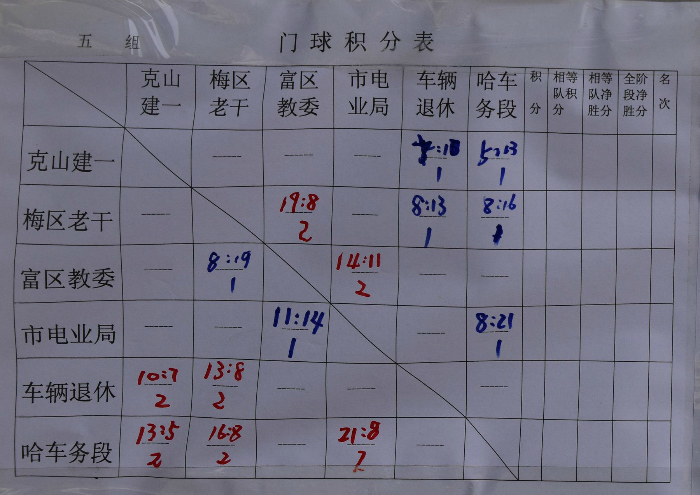 五 组 门球积分表
克山建一 梅区老干 富区教委 市电业局 车辆退休 哈车务段 积分 相等队积分 相等队净胜分 全阶段净胜分 名次
克山建一 --- --- --- 1 5:13 1
梅区老干 --- 19:8 2 --- 8:13 1 8:16 1
富区教委 --- 8:19 1 14:11 2 --- ---
市电业局 --- --- 11:14 1 --- 8:21 1
车辆退休 10:7 2 13:8 2 --- --- ---
哈车务段 13:5 2 16:8 2 --- 21:8 2 ---